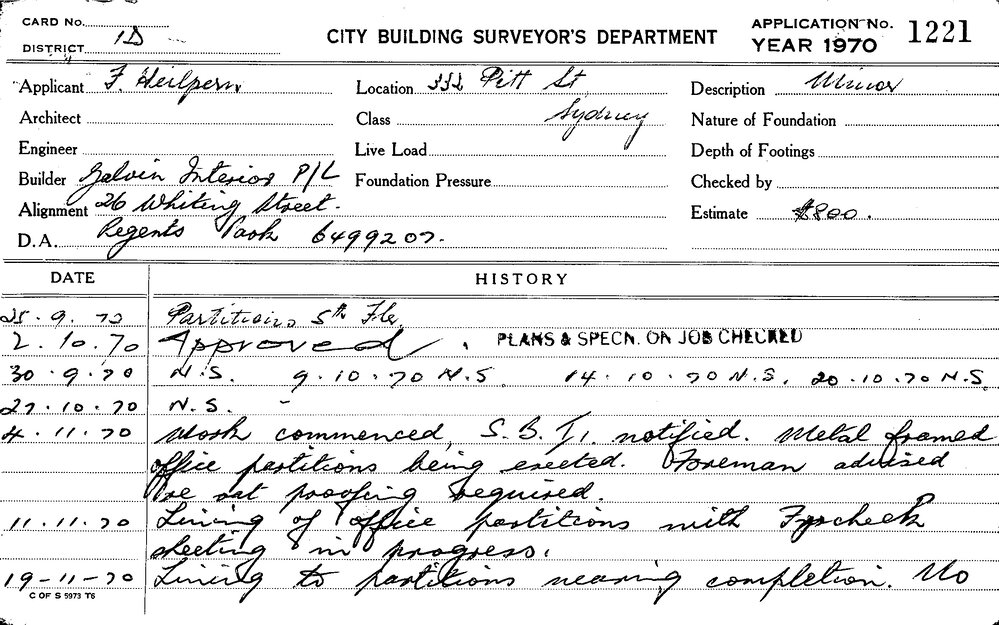 CARD No.
DISTRICT 1D
CITY BUILDING SURVEYOR'S DEPARTMENT
APPLICATION No. 1221
YEAR 1970
Applicant F. Heilpern
Location 332 Pitt St
Description Minor
Architect
Class Sydney
Nature of Foundation
Engineer
Live Load
Depth of Footings
Builder Galvin Interior P/L
Foundation Pressure
Checked by
Alignment 26 Whiting Street.
Estimate $800.
D.A. Regents Park 6499207.
DATE HISTORY
25.9.70 Partitions 5th Flr
2.10.70 Approved. PLANS & SPECN. ON JOB CHECKED
30.9.70 N.S. 9.10.70 N.S. 14.10.70 N.S. 20.10.70 N.S.
27.10.70 N.S. -
4.11.70 Work commenced, S.B.I. notified. Metal framed
office partitions being erected. Foreman advised
re rat proofing required.
11.11.70 Lining of office partitions with Fyrcheck
sheeting in progress.
19-11-70 Lining to partitions nearing completion. No
C OF S 5973 T6